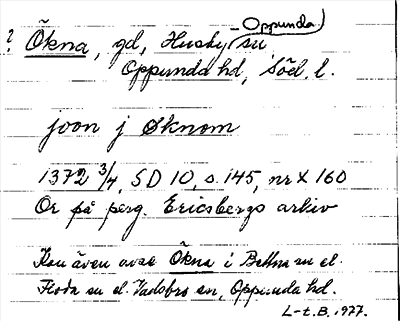 ? Ökna, gd, Husby – Oppunda sn
Oppunda hd, Söd. l.
joon j Øknom
1372 3/4, SD 10, s. 145, nr X 160
Or på perg. Ericsbergs arkiv
Kan även avse Ökna i Bettna sn el.
Floda sn el. Vadsbro sn, Oppunda hd.
L-t.B. 1977.